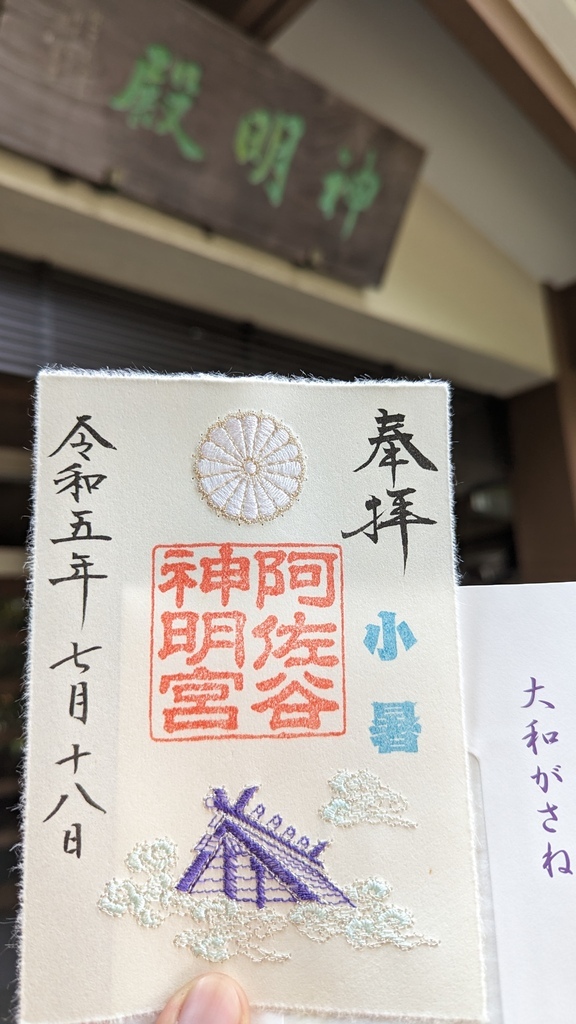 神明殿
奉拝
小暑
阿佐谷
神明宮
令和五年七月十八日
大和がさね